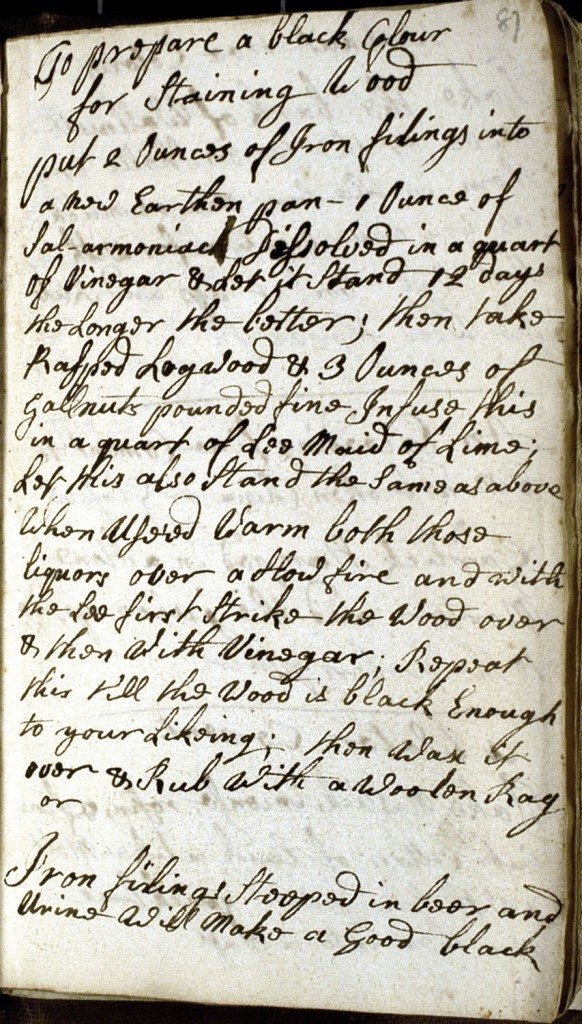 87
To prepare a black Colour
for Staining Wood
put 2 Ounces of Iron filings into
a new Earthen pan - 1 Ounce of
Sal-armoniack, Dissolved in a quart
of Vinegar & Let it Stand 12 days
the Longer the better; then take
Rasped Logwood & 3 Ounces of
Gallnuts pounded fine Infuse this
in a quart of Lee Maid of Lime;
Let this also Stand the Same as above
When Useed Warm both those
liquors over a slow fire and with
the Lee first Strike the Wood over
& then With Vinegar; Repeat
this till the Wood is black Enough
to your Likeing; then Wax it
over & Rub With a Woolen Rag
or
Iron filings Steeped in beer and
Urine Will Make a Good black